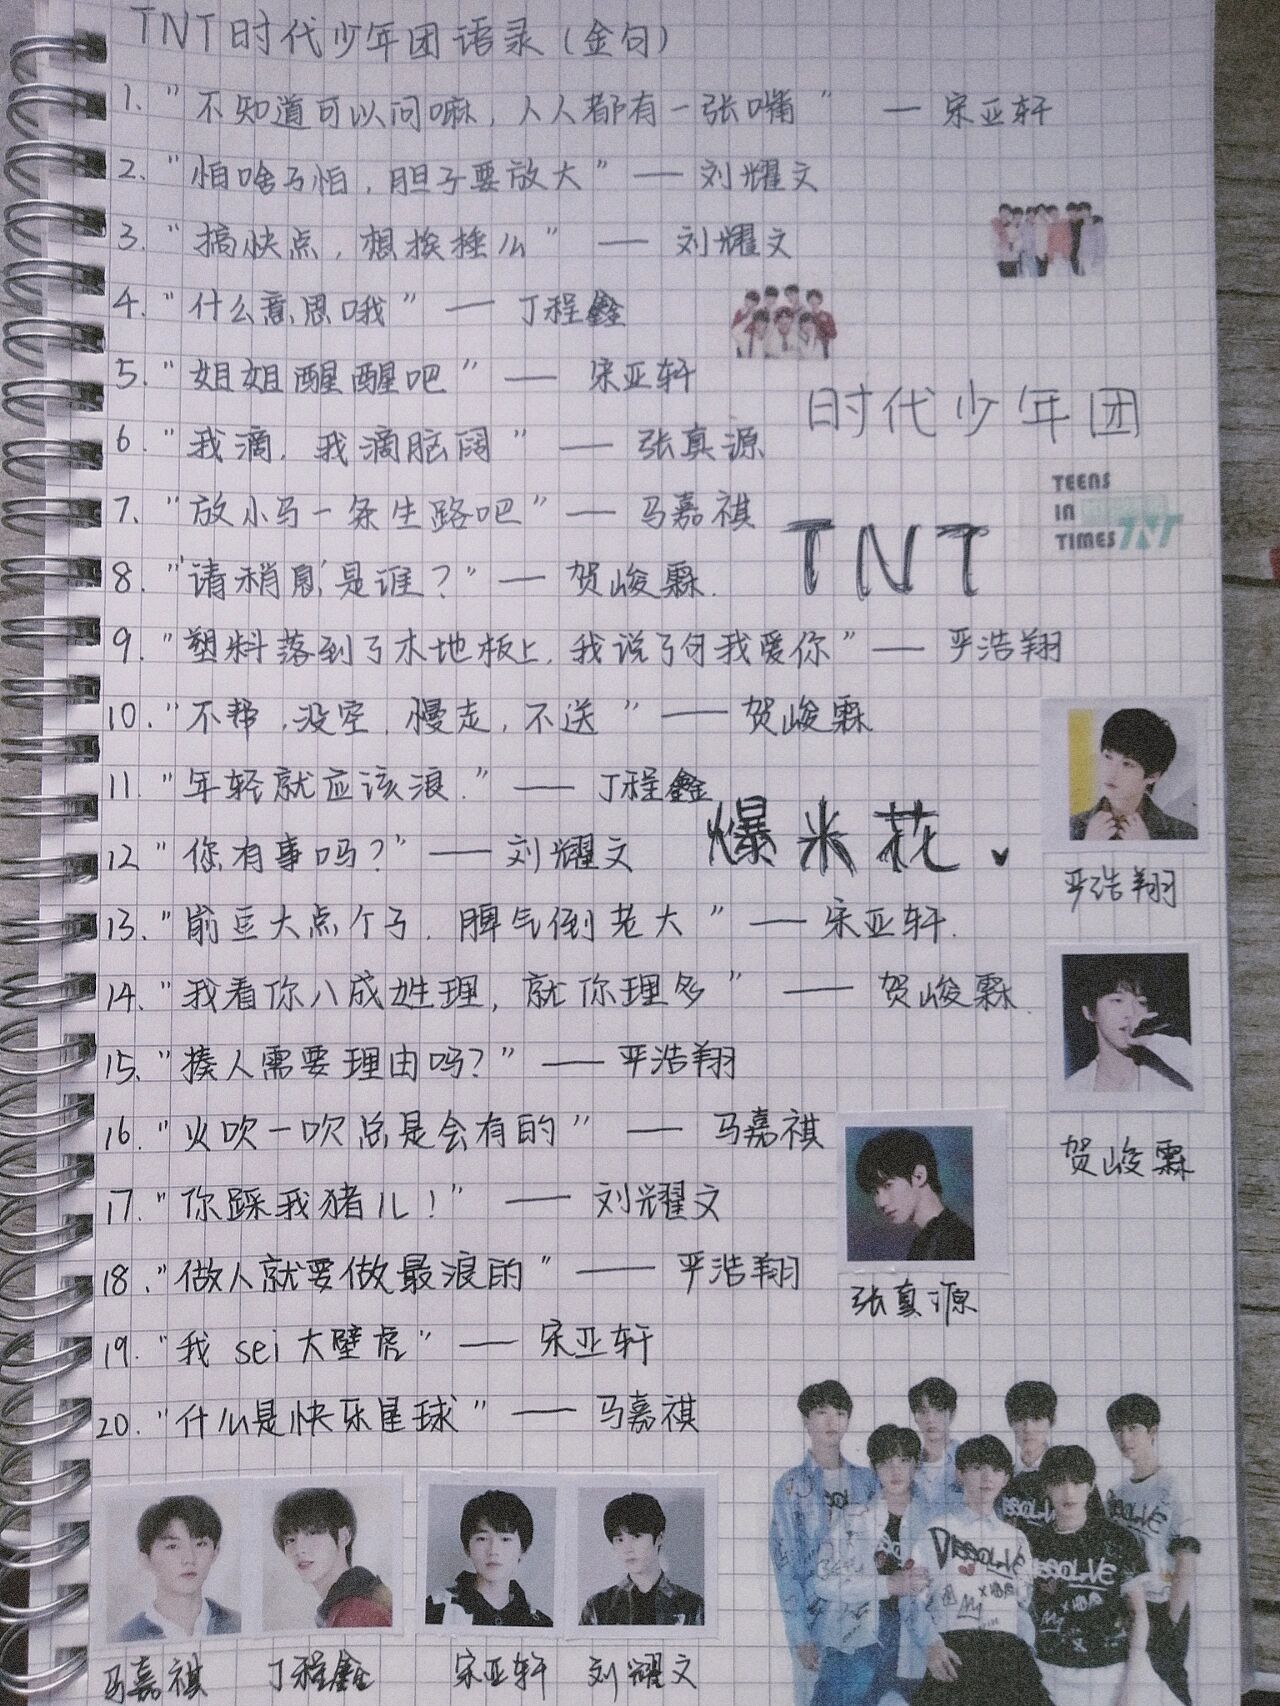 TNT时代少年团语录(金句)
1. "不知道可以问嘛,人人都有一张嘴" — 宋亚轩
2. "怕啥子怕,胆子要放大" — 刘耀文
3. "搞快点,想挨捶么" — 刘耀文
4. "什么意思哦" — 丁程鑫
5. "姐姐醒醒吧" — 宋亚轩
6. "我滴,我滴脑阔" — 张真源
7. "放小马一条生路吧" — 马嘉祺
8. "'请稍息'是谁?" — 贺峻霖.
9. "塑料落到了木地板上,我说了句我爱你" — 严浩翔
10. "不帮,没空,慢走,不送" — 贺峻霖
11. "年轻就应该浪." — 丁程鑫
12 "你有事吗?" — 刘耀文
13. "豌豆大点个子,脾气倒老大" — 宋亚轩.
14. "我看你八成姓理,就你理多" — 贺峻霖.
15. "揍人需要理由吗?" — 严浩翔
16. "火吹一吹总是会有的" — 马嘉祺
17. "你踩我猪儿!" — 刘耀文
18. "做人就要做最浪的" — 严浩翔
19. "我 sei 大壁虎" — 宋亚轩
20. "什么是快乐星球" — 马嘉祺
时代少年团
TEENS
IN
TIMES TNT
TNT
爆米花
严浩翔
贺峻霖
张真源
马嘉祺
丁程鑫
宋亚轩
刘耀文
DISSOLVE